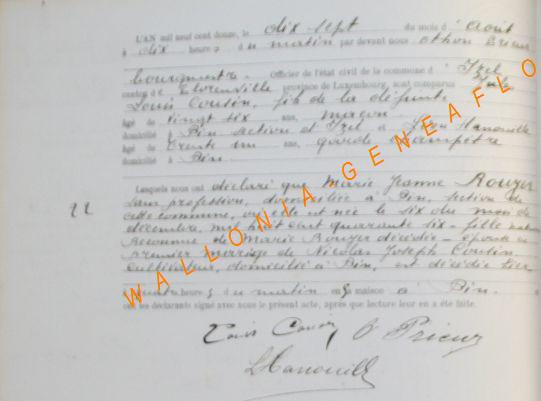 L'AN mil neuf cent douze, le dix sept du mois d'Août
à dix heures du matin par devant nous Othon Prieur
bourgmestre Officier de l'état civil de la commune d'Izel
canton de Florenville province de Luxembourg, sont comparus
Louis Cousin, fils de la défunte
âgé de vingt six ans, maçon
domicilié à Pin section d'Izel et Hanouille
âgé de trente un ans, garde champêtre
domicilié à Pin.
Lesquels nous ont déclaré que Marie Jeanne Rouyer
sans profession, domiciliée à Pin, section de
cette commune, où elle est née le six du mois de
décembre, mil huit cent quarante six - fille naturelle
de Marie Rouyer décédée - épouse en
premier mariage de Nicolas Joseph Cousin
cultivateur, domicilié à Pin, est décédée hier
heures du matin en sa maison à Pin.
22
ont les déclarants signé avec nous le présent acte, après que lecture leur en a été faite.
Louis Cousin O Prieur
Hanouille
WALLONIA GENEAFLO